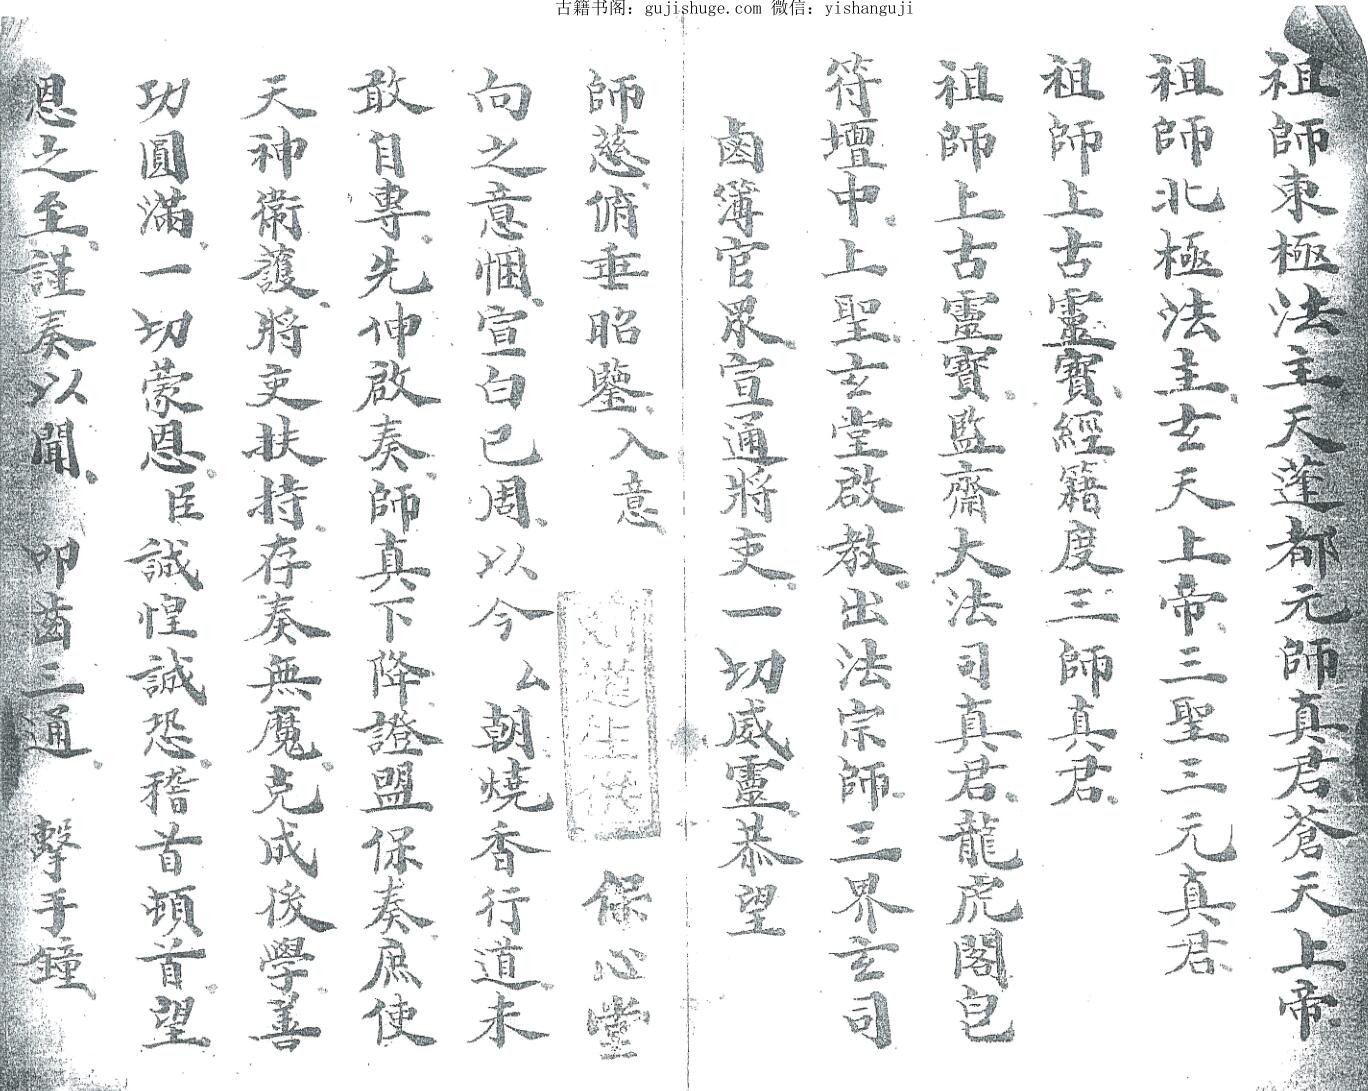 古籍书阁：gujishuge.com 微信：yishanguji
祖師東極法主天蓬都元師真君蒼天上帝
祖師北極法主玄天上帝三聖三元真君
祖師上古靈寶經籍度三師真君
祖師上古靈寶監齋大法司真君龍虎閣皂
符壇中上聖玄堂啟教出法宗師三界玄司
鹵簿官眾宣通將吏一切威靈恭望
師慈俯垂昭鑒入意 保心堂
向之意悃宣白已周以今厶朝燒香行道未
敢自專先伸啟奏師真下降證盟保奏庶使
天神衛護將吏扶持存奏無魔克成後學善
功圓滿一切蒙恩臣誠惶誠恐稽首頓首望
恩之至謹奏以聞 叩齒三通 擊手鐘